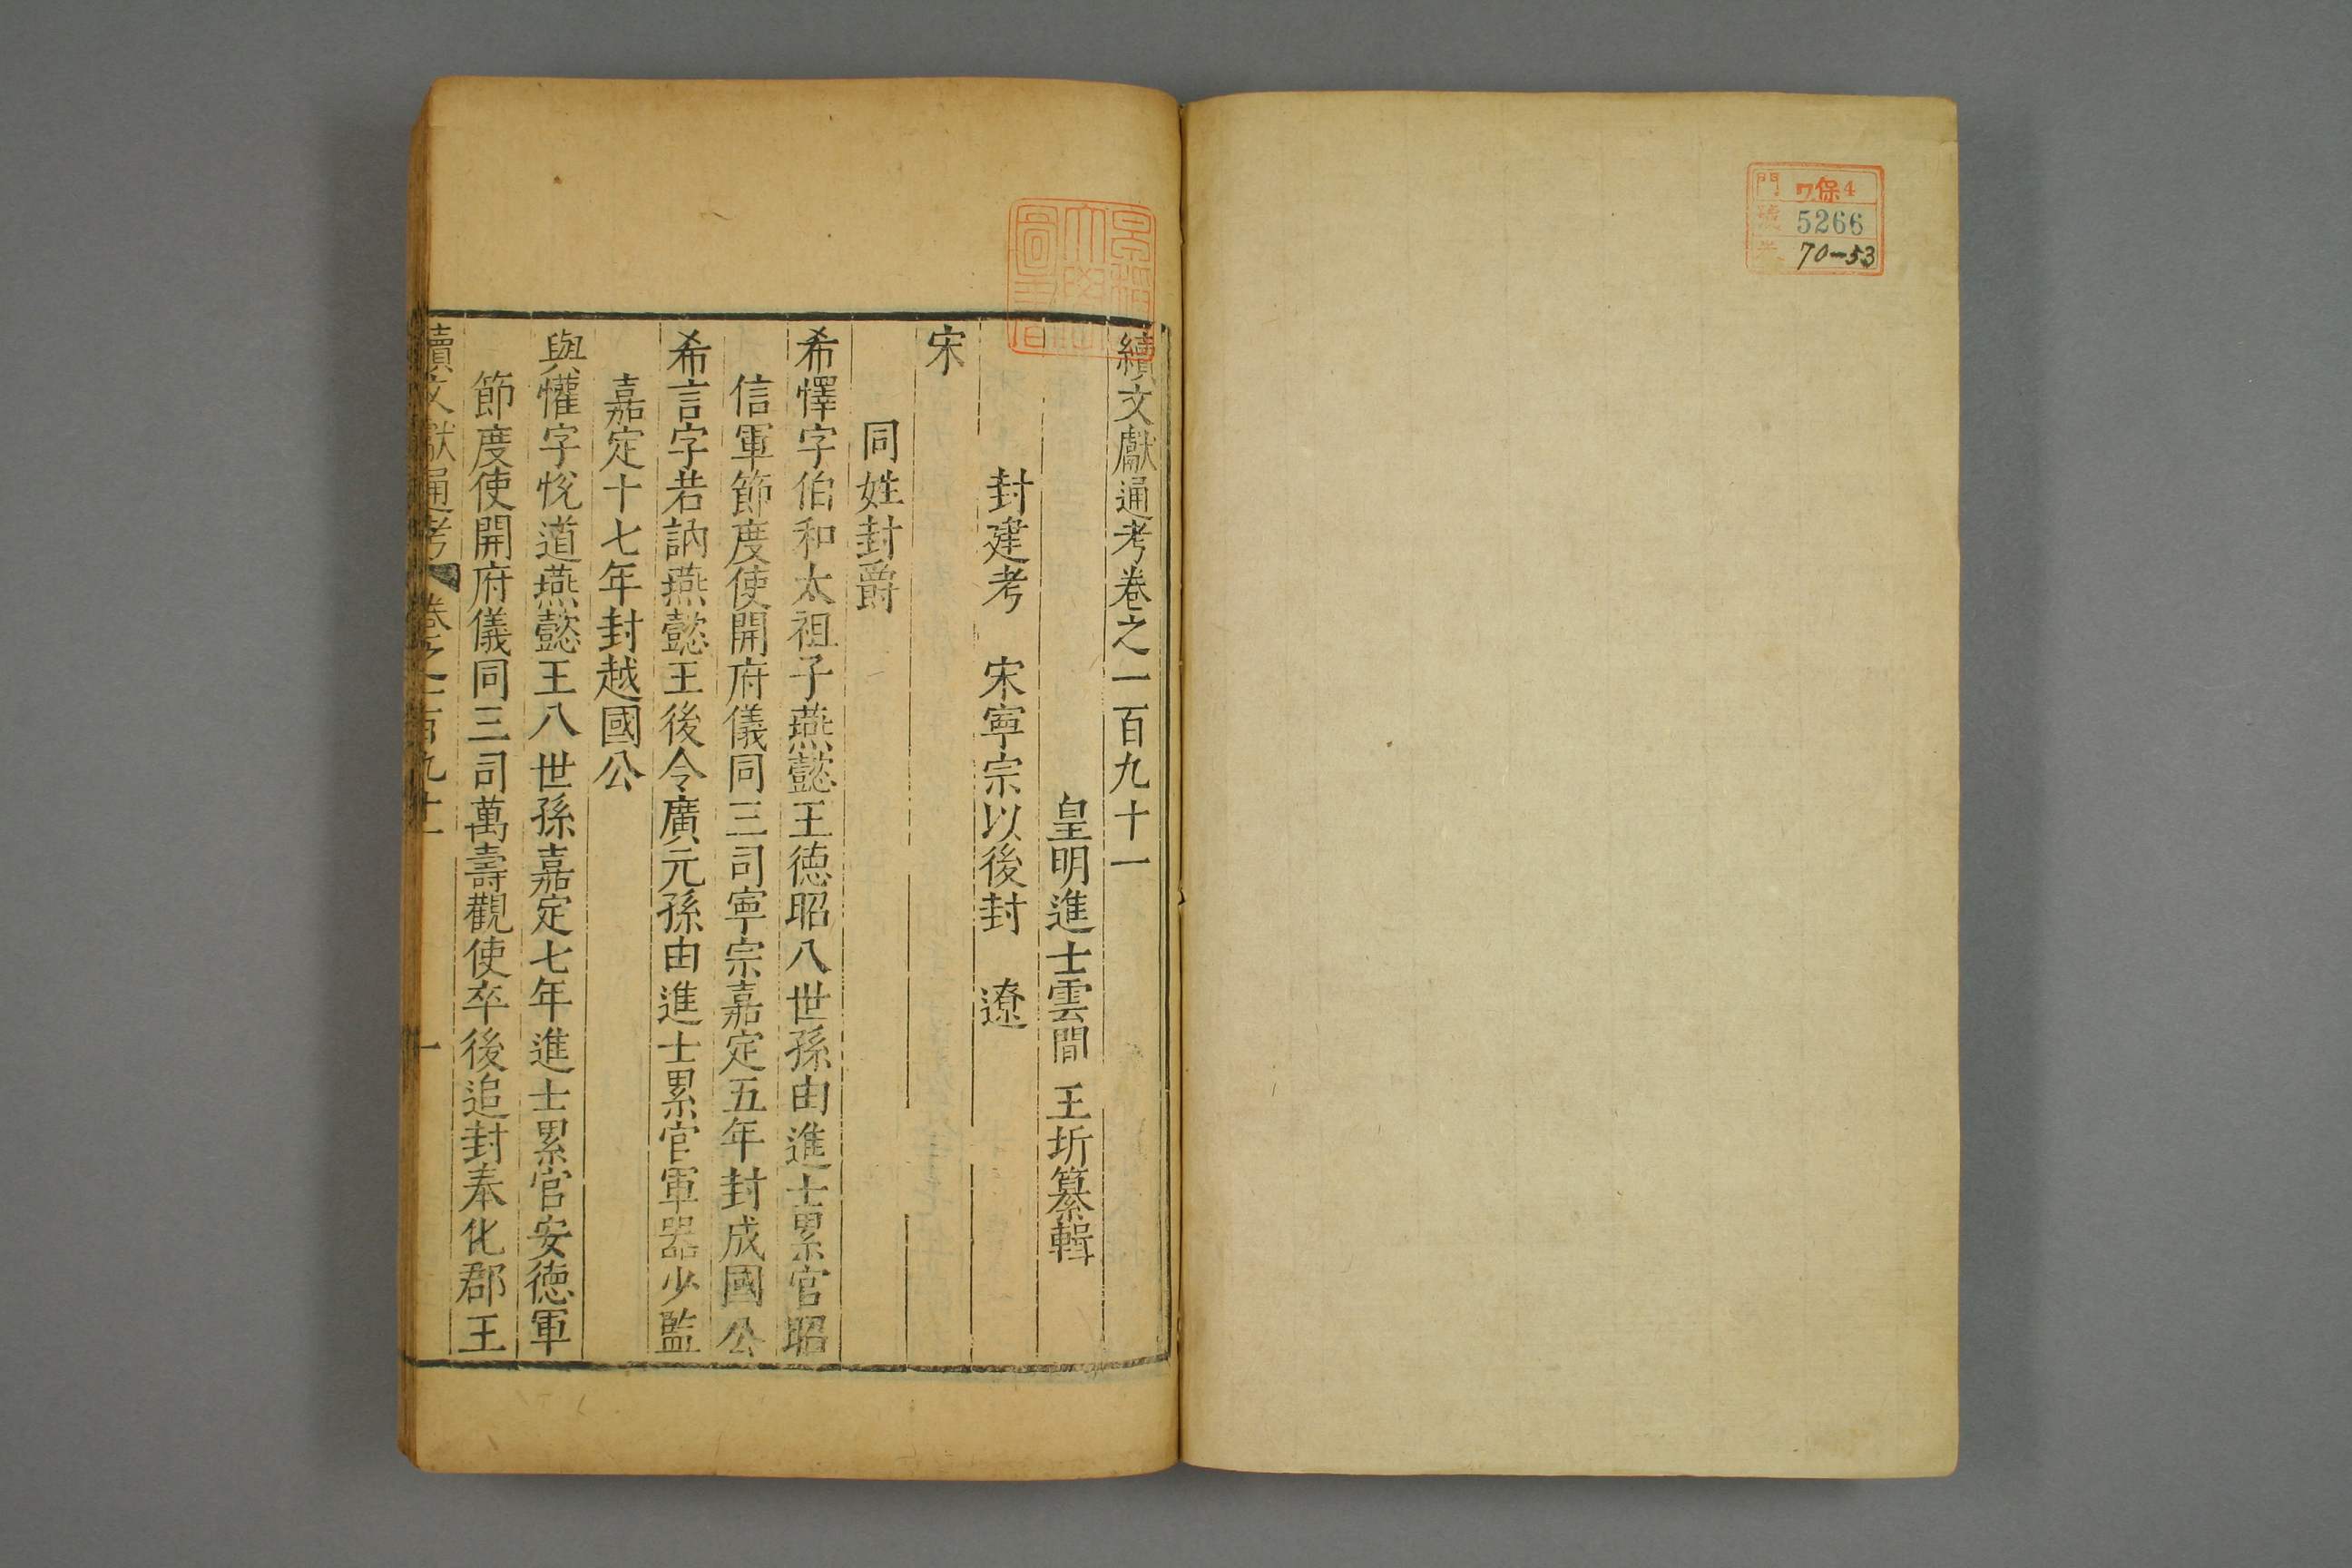 門 ワ保4
號 5266
70-53
早稲田大學圖書
續文獻通考卷之一百九十一
皇明進士雲間 王圻纂輯
封建考 宋寧宗以後封 遼
宋
同姓封爵
希懌字伯和太祖子燕懿王德昭八世孫由進士累官昭
信軍節度使開府儀同三司寧宗嘉定五年封成國公
希言字若訥燕懿王後令廣元孫由進士累官軍器少監
嘉定十七年封越國公
與懽字悅道燕懿王八世孫嘉定七年進士累官安德軍
節度使開府儀同三司萬壽觀使卒後追封奉化郡王
續文獻通考 卷之一百九十一 一